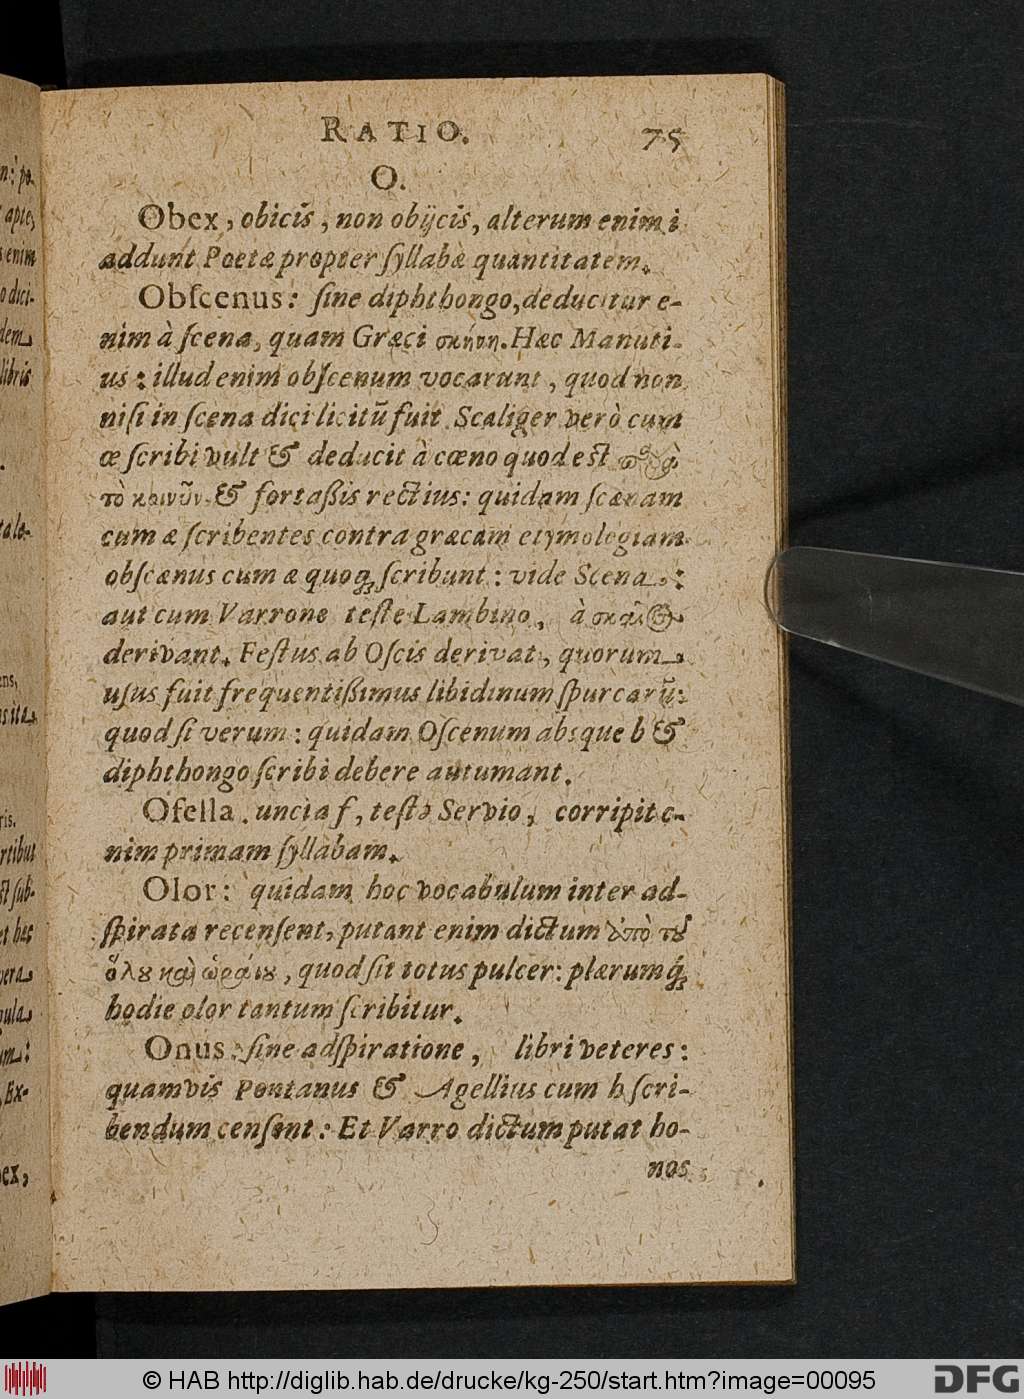 RATIO. 75
O.
Obex, obicis, non obijcis, alterum enim i
addunt Poetæ propter ſyllabæ quantitatem.
Obſcenus: ſine diphthongo, deducitur e-
nim à ſcena, quam Græci σκήνη. Hæc Manuti-
us: illud enim obſcenum vocarunt, quod non
niſi in ſcena dici licitũ fuit Scaliger verò cum
œ ſcribi vult & deducit à cœno quod est
τὸ κοινῦν. & fortaßis rectius: quidam ſcænam
cum æ ſcribentes contra græcam etymologiam
obſcænus cum æ quoq; ſcribunt: vide Scena.:
aut cum Varrone teſte Lambino, à
derivant. Feſtus ab Oſcis derivat, quorum
uſus fuit frequentißimus libidinum ſpurcarũ:
quod ſi verum: quidam Oſcenum absque b &
diphthongo ſcribi debere autumant.
Ofella. uncia f, teſte Servio, corripit e-
nim primam ſyllabam.
Olor: quidam hoc vocabulum inter ad-
ſpirata recenſent, putant enim dictum ἀπὸ τȣ͂
ὅλȣ καὶ ὡραίȣ, quod ſit totus pulcer: plærumq́;
hodie olor tantum ſcribitur.
Onus: ſine adſpiratione, libri veteres:
quamvis Pontanus & Agellius cum h ſcri-
bendum cenſent: Et Varro dictum putat ho-
nos
n: po-
apte,
s enim
o dici-
dem
libris
ens,
ris.
rtibus
ſt ſub-
et hæc
vera
Ex-
bex,
© HAB http://diglib.hab.de/drucke/kg-250/start.htm?image=00095
DFG